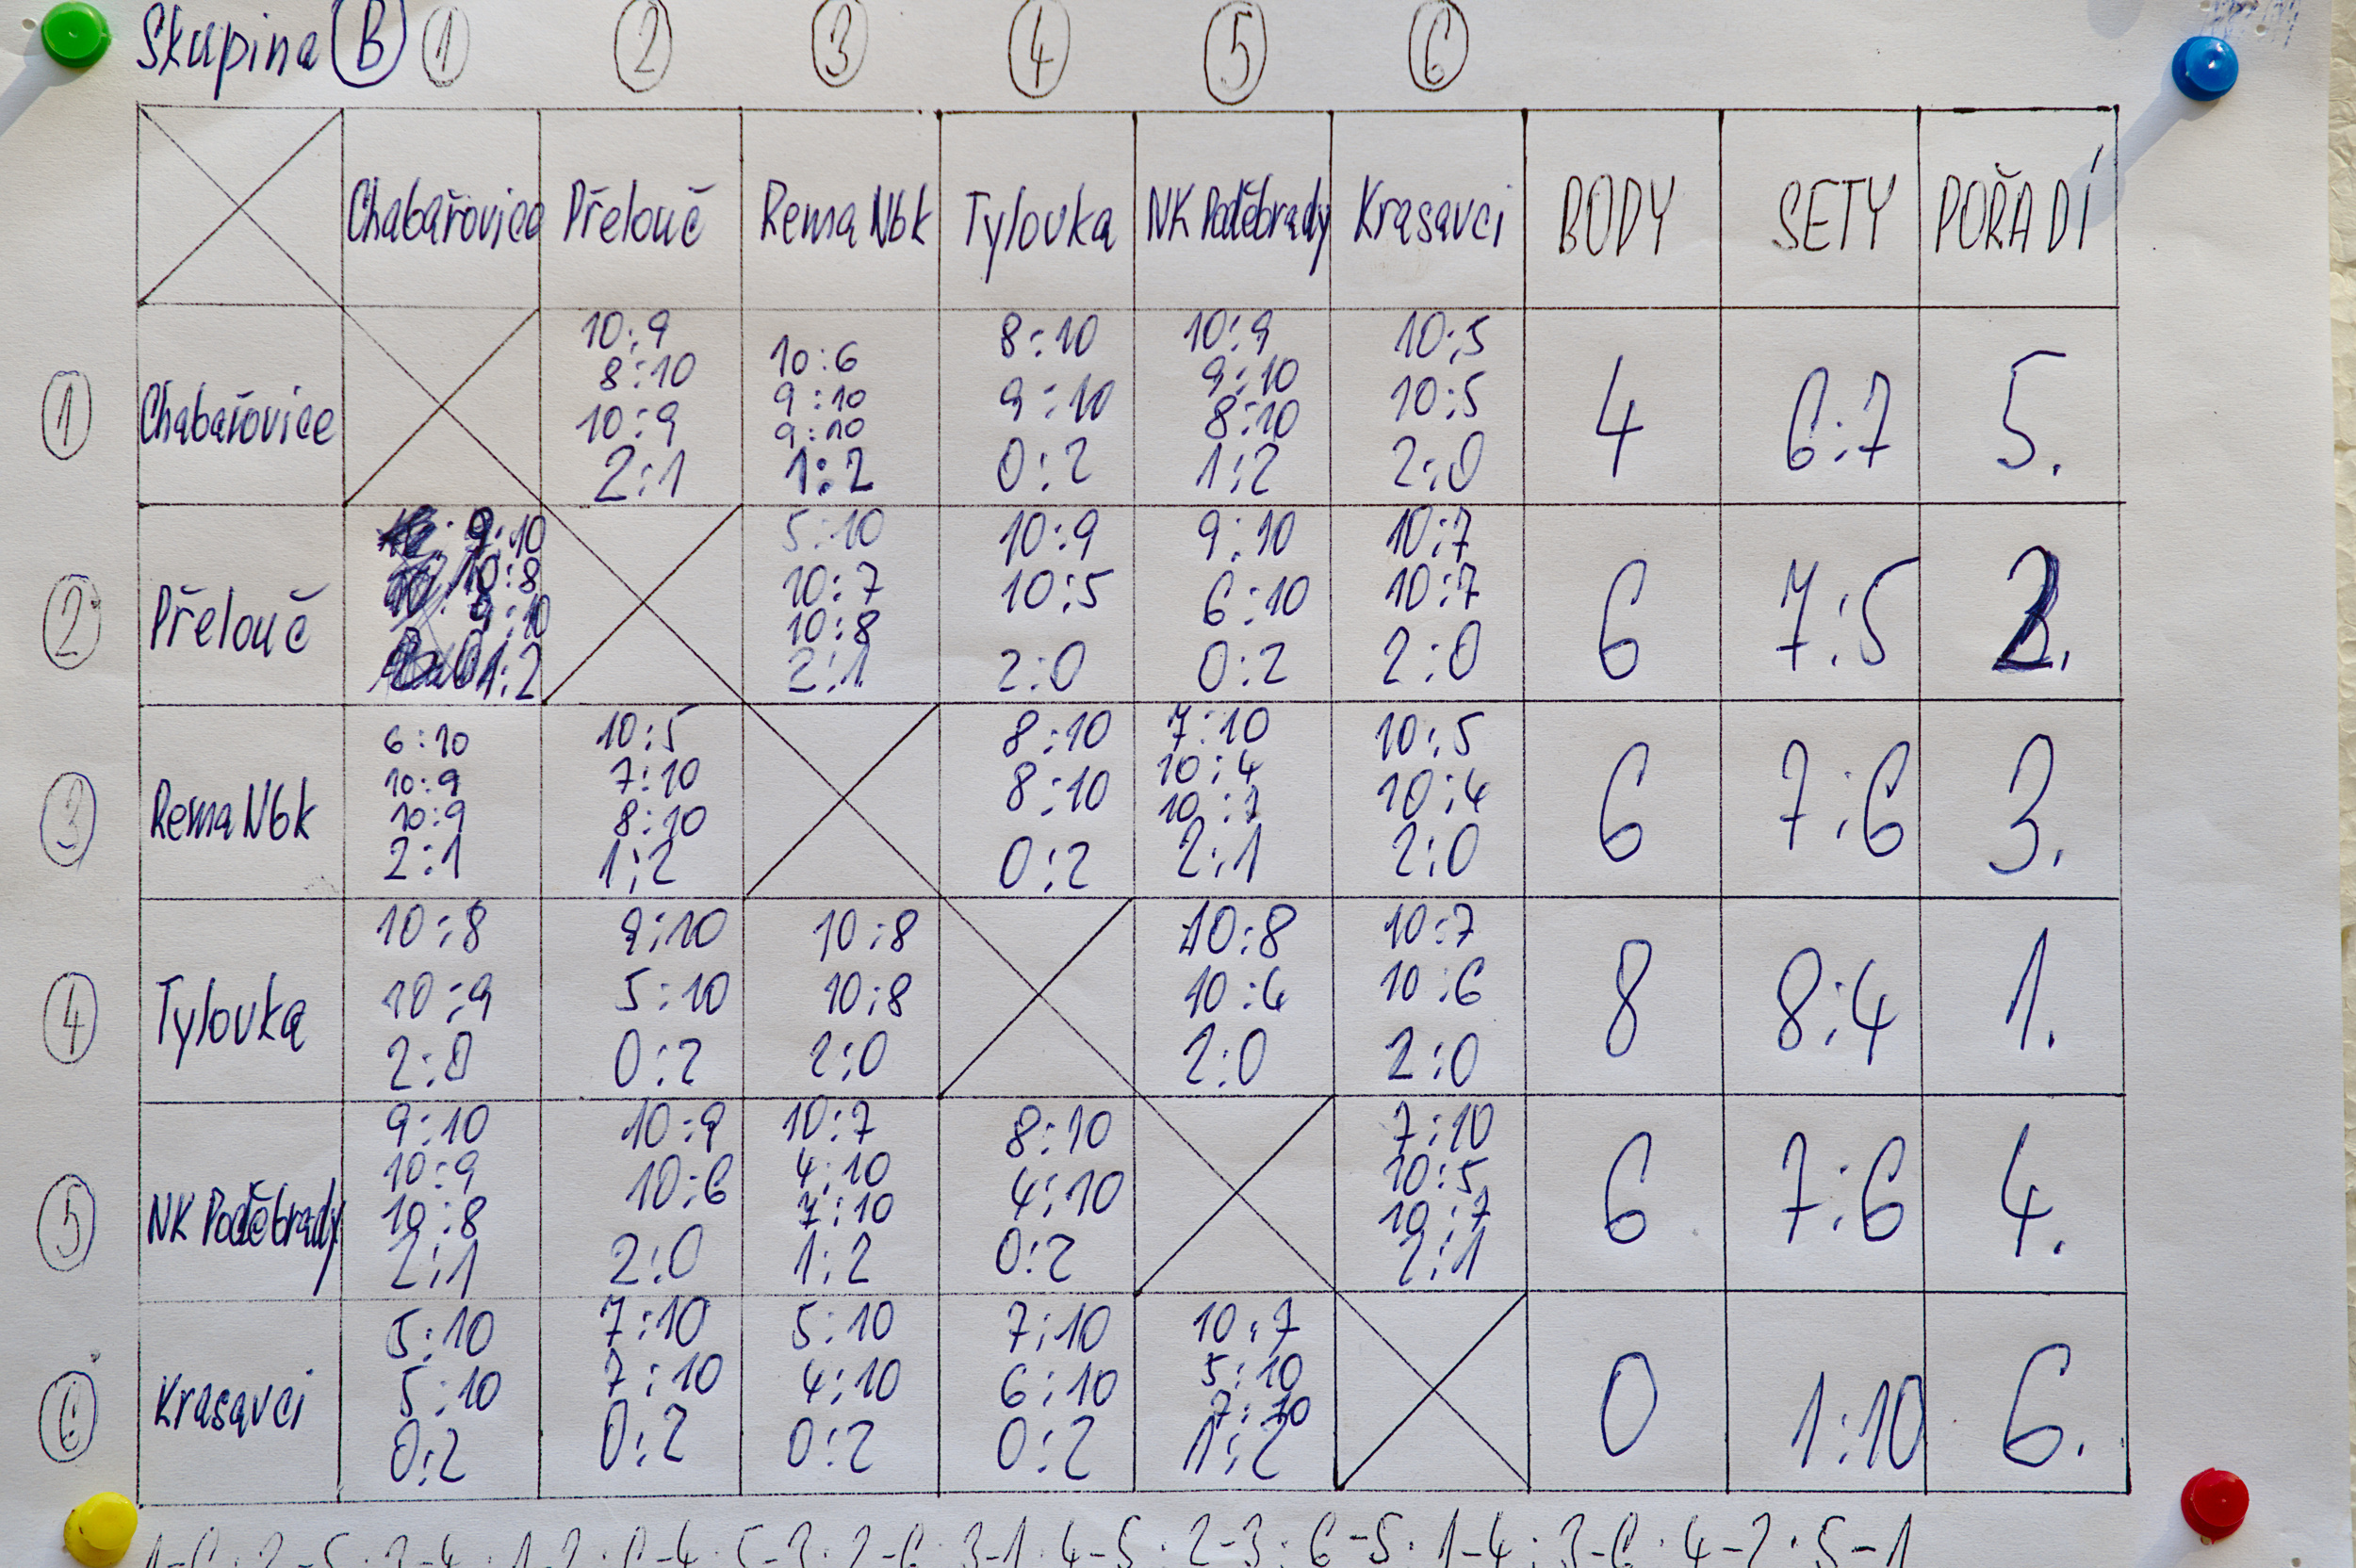 Skupina B 1 2 3 4 5 6
Chabařovice Přelouč Rema Nbk Tylovka NK Poděbrady Krasavci BODY SETY POŘADÍ
1 Chabařovice
10:9
8:10
10:9
2:1
10:6
9:10
9:10
1:2
8:10
9:10
0:2
10:9
9:10
8:10
1:2
10:5
10:5
2:0
4
6:7
5.
2 Přelouč
9:10
10:8
9:10
1:2
5:10
10:7
10:8
2:1
10:9
10:5
2:0
9:10
6:10
0:2
10:7
10:7
2:0
6
7:5
2.
3 Rema Nbk
6:10
10:9
10:9
2:1
10:5
7:10
8:10
1:2
8:10
8:10
0:2
7:10
10:4
10:7
2:1
10:5
10:4
2:0
6
7:6
3.
4 Tylovka
10:8
10:9
2:0
9:10
5:10
0:2
10:8
10:8
2:0
10:8
10:4
2:0
10:7
10:6
2:0
8
8:4
1.
5 NK Poděbrady
9:10
10:9
10:8
2:1
10:9
10:6
2:0
10:7
4:10
7:10
1:2
8:10
4:10
0:2
7:10
10:5
10:7
2:1
6
7:6
4.
6 Krasavci
5:10
5:10
0:2
7:10
7:10
0:2
5:10
4:10
0:2
7:10
6:10
0:2
10:7
5:10
7:10
1:2
0
1:10
6.
1-6 · 2-5 · 3-4 · 1-2 · 6-4 · 5-3 · 2-6 · 3-1 · 4-5 · 2-3 · 6-5 · 1-4 · 3-6 · 4-2 · 5-1